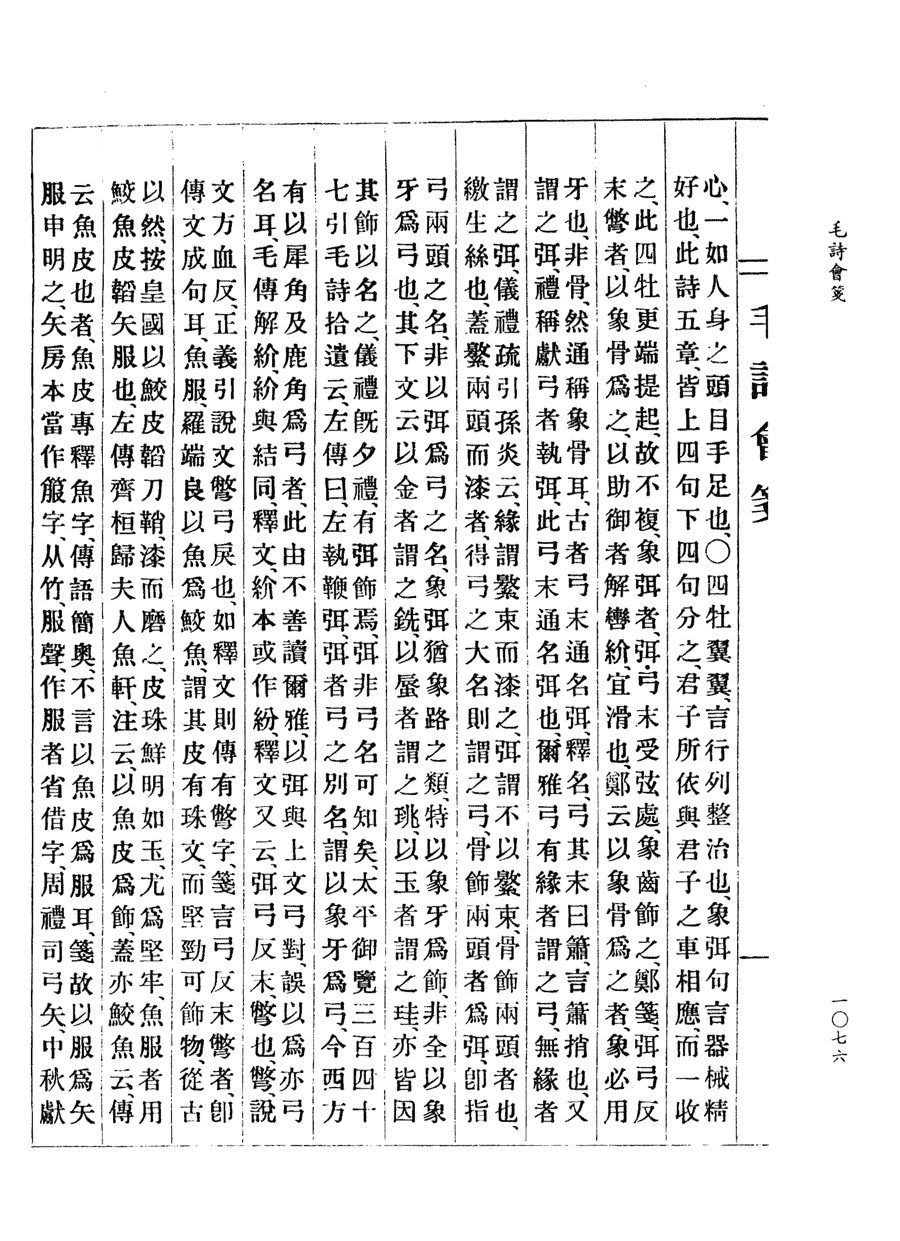 毛詩會箋
一〇七六
毛詩會箋
心、一如人身之頭目手足也、〇四牡翼翼、言行列整治也、象弭句言器械精
好也、此詩五章、皆上四句下四句分之、君子所依與君子之車相應、而一收
之、此四牡更端提起、故不複、象弭者、弭弓末受弦處、象齒飾之、鄭箋、弭弓反
末彆者、以象骨爲之、以助御者解轡紒、宜滑也、鄭云以象骨爲之者、象必用
牙也、非骨、然通稱象骨耳、古者弓末通名弭、釋名、弓其末曰簫、言簫捎也、又
謂之弭、禮稱獻弓者執弭、此弓末通名弭也、爾雅弓有緣者謂之弓、無緣者
謂之弭、儀禮疏引孫炎云、緣謂繁束而漆之、弭謂不以繁束、骨飾兩頭者也、
繳生絲也、蓋繫兩頭而漆者、得弓之大名則謂之弓、骨飾兩頭者爲弭、卽指
弓兩頭之名、非以弭爲弓之名、象弭猶象路之類、特以象牙爲飾、非全以象
牙爲弓也、其下文云以金者謂之銑、以蜃者謂之珧、以玉者謂之珪、亦皆因
其飾以名之、儀禮旣夕禮、有弭飾焉、弭非弓名可知矣、太平御覽三百四十
七引毛詩拾遺云、左傳曰、左執鞭弭、弭者弓之別名、謂以象牙爲弓、今西方
有以犀角及鹿角爲弓者、此由不善讀爾雅、以弭與上文弓對、誤以爲亦弓
名耳、毛傳解紒、紒與結同、釋文、紒本或作紛、釋文又云、弭弓反末彆也、彆、說
文方血反、正義引說文彆弓戾也、如釋文則傳有彆字、箋言弓反末彆者、卽
傳文成句耳、魚服、羅端良以魚爲鮫魚、謂其皮有珠文、而堅勁可飾物、從古
以然、按皇國以鮫皮韜刀鞘、漆而磨之、皮珠鮮明如玉、尤爲堅牢、魚服者用
鮫魚皮韜矢服也、左傳齊桓歸夫人魚軒、注云、以魚皮爲飾、蓋亦鮫魚云、傳
云魚皮也者、魚皮專釋魚字、傳語簡奧、不言以魚皮爲服耳、箋故以服爲矢
服申明之、矢房本當作箙字、从竹、服聲、作服者省借字、周禮司弓矢、中秋獻